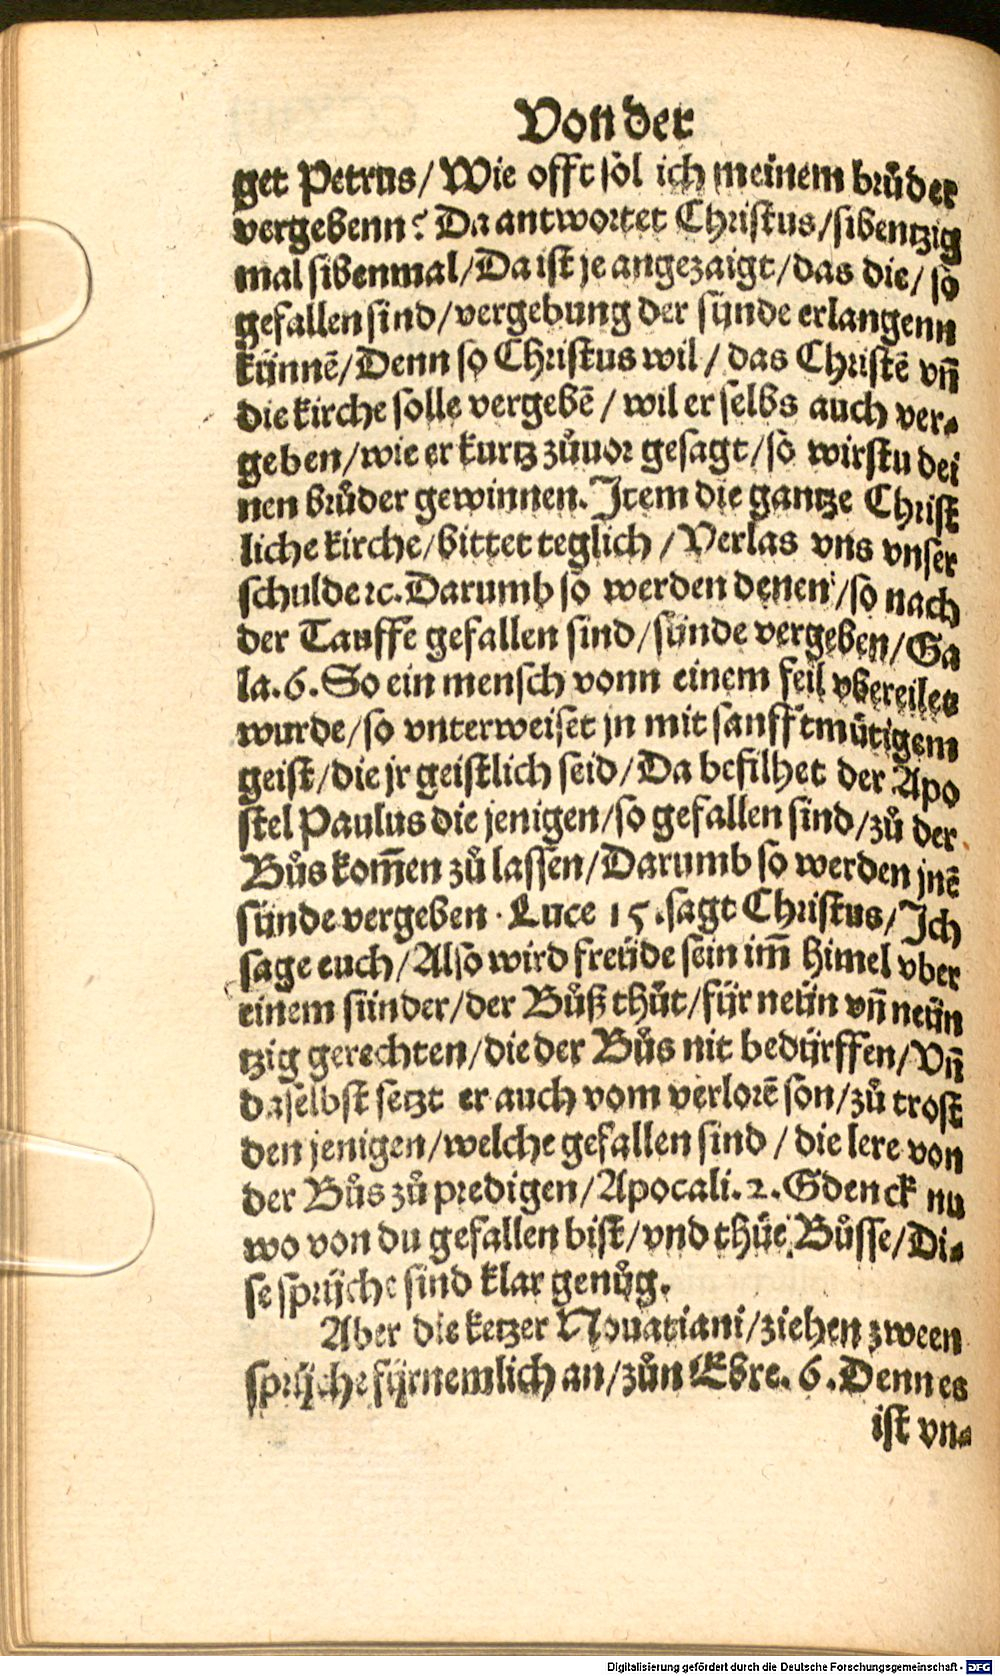 Von der
get Petrus/ Wie offt sol ich meinem brůder
vergebenn? Da antwortet Christus/ sibentzig
mal sibenmal/ Da ist je angezaigt/ das die/ so
gefallen sind/ vergebung der sünde erlangenn
künnē/ Denn so Christus wil/ das Christē vñ
die kirche solle vergebē/ wil er selbs auch ver-
geben/ wie er kurtz zůuor gesagt/ so wirstu dei
nen brůder gewinnen. Item die gantze Christ
liche kirche/ bittet teglich/ Verlas vns vnser
schulde ꝛc. Darumb so werden denen/ so nach
der Tauffe gefallen sind/ sünde vergeben/ Ga
la. 6. So ein mensch vonn einem feil vbereilet
wurde/ so vnterweiset jn mit sanfftmütigem
geist/ die jr geistlich seid/ Da befilhet der Apo
stel Paulus die jenigen/ so gefallen sind/ zů der
Bůs kom̄en zů lassen/ Darumb so werden jnē
sünde vergeben. Luce 15. sagt Christus/ Ich
sage euch/ Also wird freüde sein im̄ himel vber
einem sünder/ der Bůß thůt/ für neün vñ neün
tzig gerechten/ die der Bůs nit bedürffen/ Vñ
daselbst setzt er auch vom verlorē son/ zů trost
den jenigen/ welche gefallen sind/ die lere von
der Bůs zů predigen/ Apocali. 2. Gdenck nu
wo von du gefallen bist/ vnd thüe Bůsse/ Di-
se sprüche sind klar genůg.
Aber die ketzer Nouatiani/ ziehen zween
sprüche fürnemlich an/ zůn Ebre. 6. Denn es
ist vn-
Digitalisierung gefördert durch die Deutsche Forschungsgemeinschaft - DFG